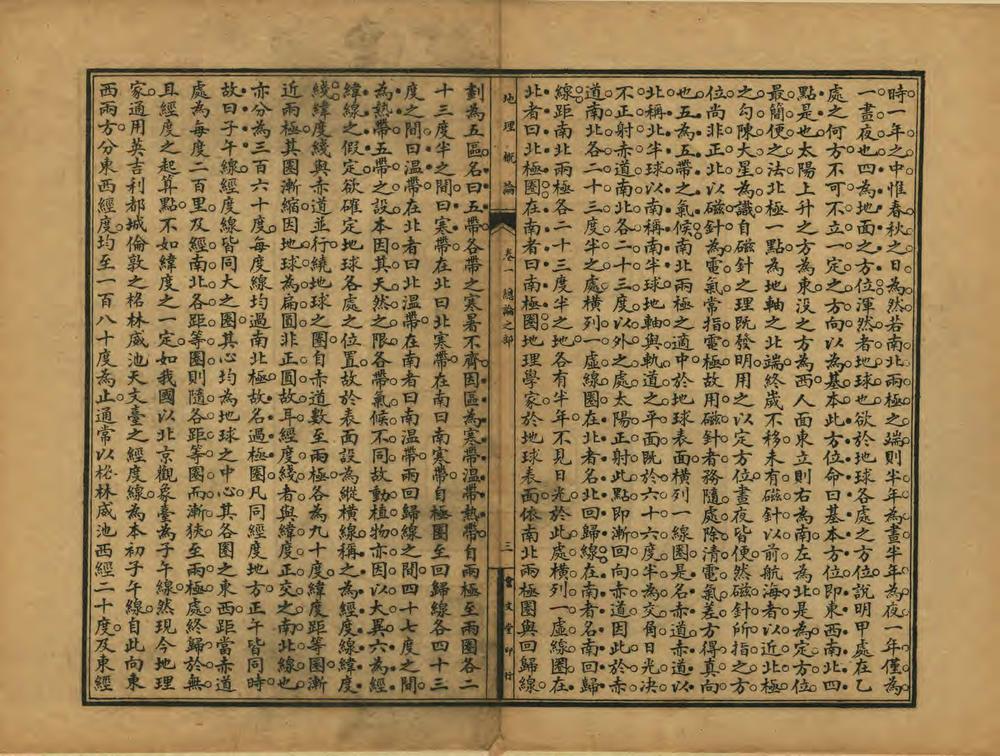 時一年之中惟春秋之日為然若南北兩極之端則半年為晝半年為夜一年僅為
一晝夜也四為地面之方位渾然者地球也欲於地球各處之方位說明甲處在乙
處之何方不可不立一定之方向以為基本此方位命曰基本方位即東西南北四
點是也太陽上升之方為東没之方為西人面東立則右為南左為北是為定方位
最簡便之法北極一點為地軸之北端終歲不移未有磁針以前航海者以近北極
之勾陳大星為識自磁針之理既發明用之以定方位晝夜皆便然磁針所指之方
位尚非正北以磁針為電氣常指電極故用磁針者務隨處除清電氣差方得真向
也五為五帶之氣候南北兩極之道中於地球表面橫列一線圈是名赤道赤道以
北稱北半球以南稱南半球地軸與軌道之平面既於六十六度半為交角日光决
不正射赤道南北各二十三度以外之處太陽正射此點即漸回向赤道因此於赤
道南北各二十三度半之處橫列一虛線圈在北者名北回歸線在南者名南回歸
線距南北兩極各二十三度半之地各有半年不見日光於此處橫列一虛線圈在
北者曰北極圈在南者曰南極圈地理學家於地球表面依南北兩極圈與回歸線
地理概論
卷一總論之部
三
會文堂印行
劃為五區名曰五帶各帶之寒暑不齊因區為寒帶溫帶熱帶自兩極至兩圈各二
十三度半之間曰寒帶在北曰北寒帶在南曰南寒帶自極圈至回歸線各四十三
度之間曰溫帶在北者曰北溫帶在南者曰南溫帶兩回歸線之間四十七度之間
為熱帶五帶之設本因其天然之限各帶氣候不同故動植物亦因以大異六為經
緯線之假定欲確定地球各處之位置故於表面設為縱橫線稱之為經度線緯度
綫緯度綫與赤道並行繞地球之圈自赤道數至兩極各為九十度緯度距等圈漸
近兩極其圈漸縮因地球為扁圓非正圓故耳經度綫者與緯度正交之南北線也
亦分為三百六十度每度線均過南北極故名過極圈凡同經度地方正午皆同時
故曰子午線經度線皆同大之圈其心均為地球之中心其各圈之東西距當赤道
處為每度二百里及經南北各距等圈則隨各距等圈而漸狹至兩極處終歸於無
且經度之起算點不如緯度之一定如我國以北京觀象臺為子午線然現今地理
家通用英吉利都城倫敦之格林威池天文臺之經度線為本初子午線自此向東
西兩方分東西經度均至一百八十度為止通常以格林威池西經二十度及東經